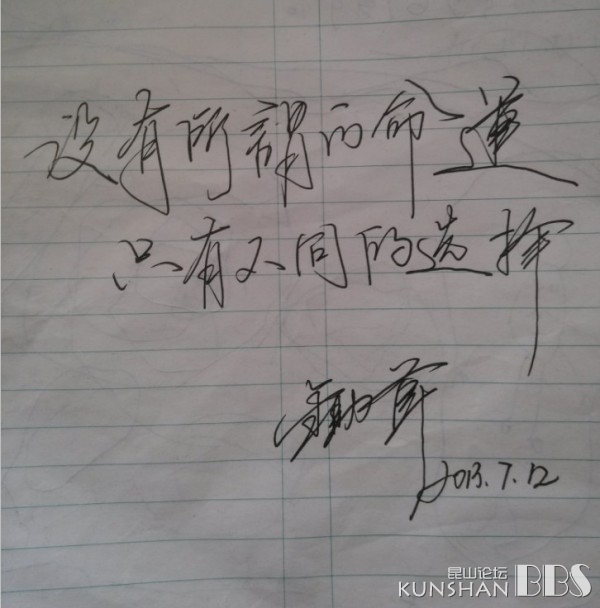 没有所謂的命運
只有不同的选择
2013.7.12
昆山论坛
KUNSHAN BBS